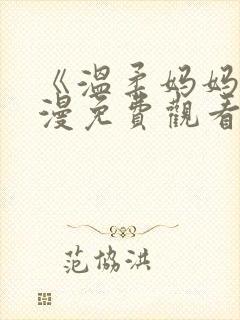 《溫柔妈妈
漫免費觀看
范協洪